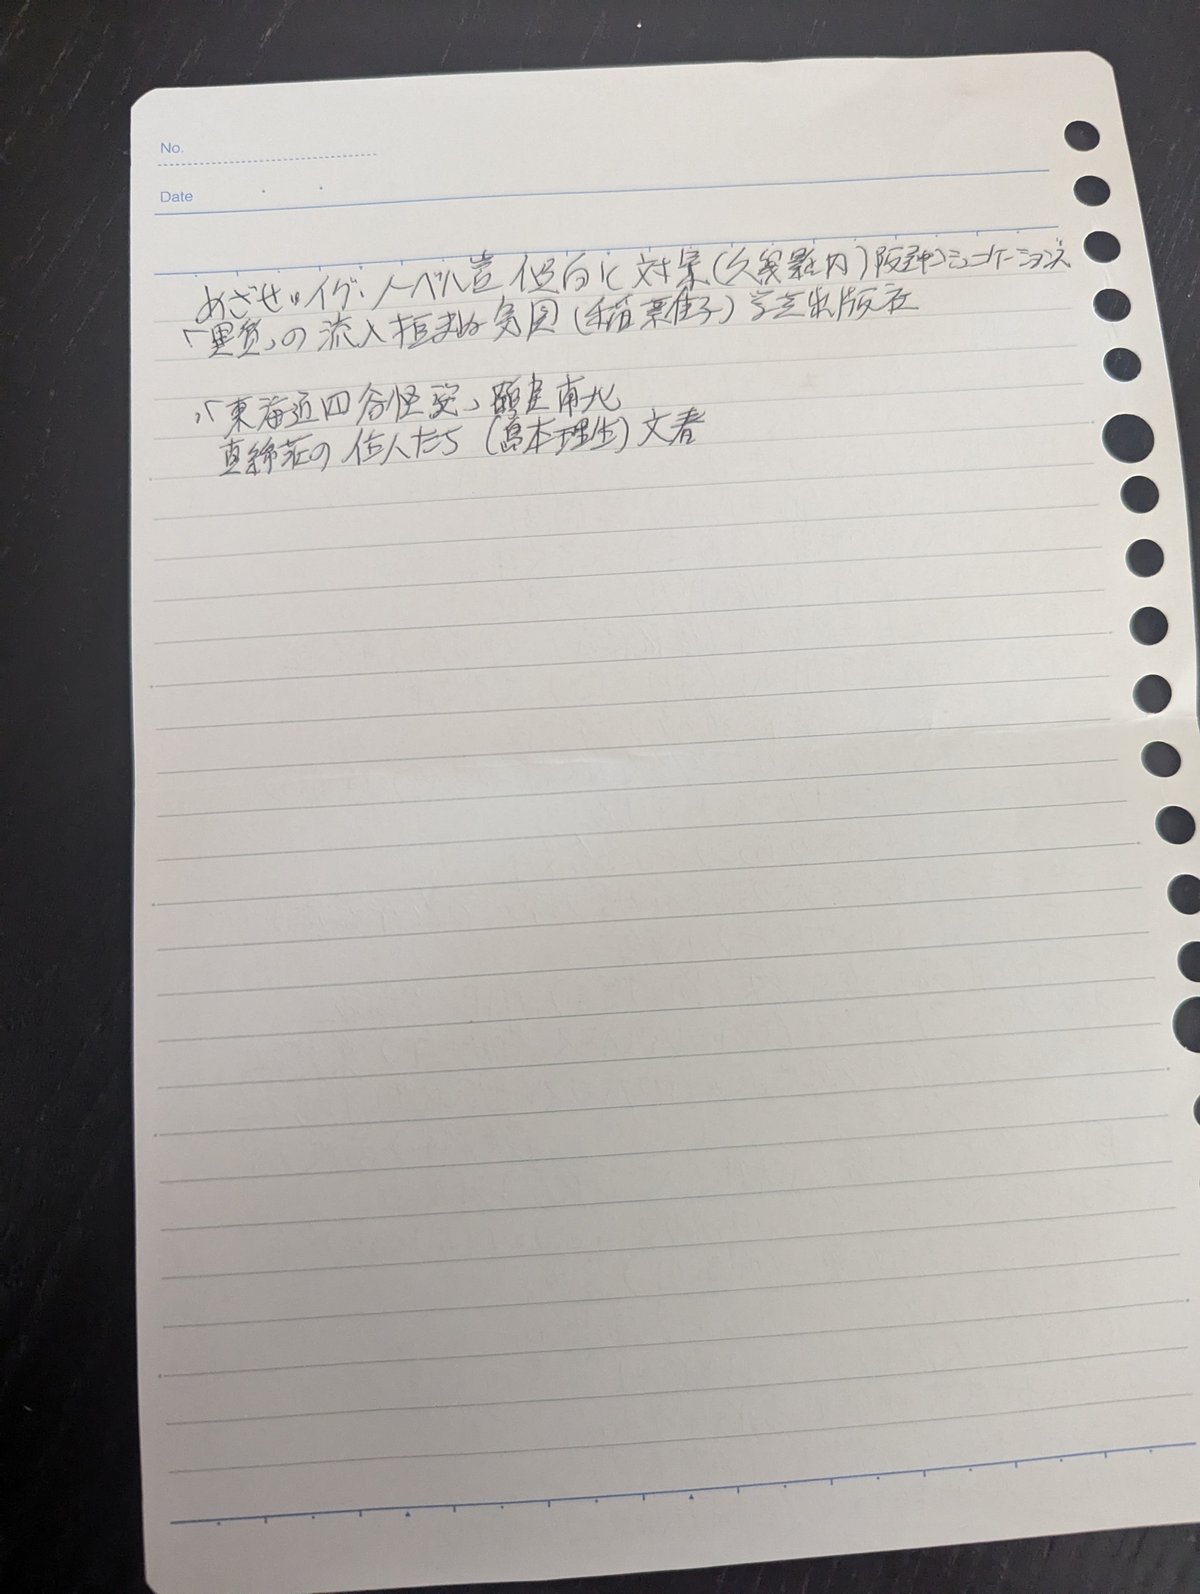 No.
Date
めざせ!!イグ・ノーベル賞 傾向と対策(久我羅内)阪急コミュニケーションズ
「異質」の流入拒まぬ気風(稲葉佳子)学芸出版社
「東海道四谷怪談」鶴屋南北
真綿荘の住人たち(島本理生)文春